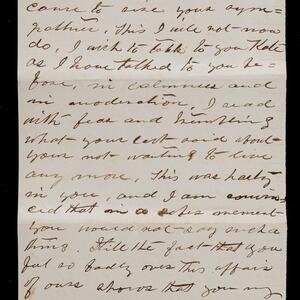 came to seize your sym-
pathies. This I will not now
do, I wish to talk to you Kate
as I have talked to you be-
fore, in calmness and
in moderation. I read
with fear and trembling
what your last said about
your not wanting to live
any more. This was hasty
in you, and I am convin-
ced that in a moment
you would not say such a
thing. Still the fact that you
feel so badly over this affair
of ours shows that you my